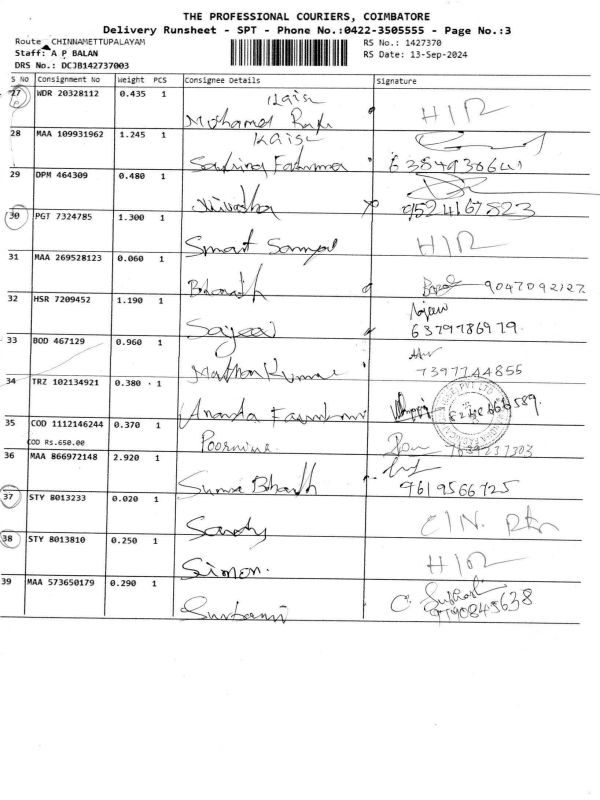 THE PROFESSIONAL COURIERS, COIMBATORE
Delivery Runsheet - SPT - Phone No.:0422-3505555 - Page No.:3
Route CHINNAMETTUPALAYAM
RS No.: 1427370
Staff: A P BALAN
RS Date: 13-Sep-2024
DRS No.: DCJB142737003
S No Consignment No Weight PCS Consignee Details Signature
27 WDR 20328112 0.435 1
Mohamed Rafi
28 MAA 109931962 1.245 1
Fathima
29 DPM 464309 0.480 1
9524167823
30 PGT 7324785 1.300 1
Smart
31 MAA 269528123 0.060 1
Bharath 9047092127
32 HSR 7209452 1.190 1
6379786979
33 BOD 467129 0.960 1
Mathan Kumar 7397744855
34 TRZ 102134921 0.380 1
Ananda
35 COD 1112146244 0.370 1
Poornima
COD Rs.650.00
36 MAA 866972148 2.920 1
9619566725
37 STY 8013233 0.020 1
Sandy
38 STY 8013810 0.250 1
Simon.
39 MAA 573650179 0.290 1